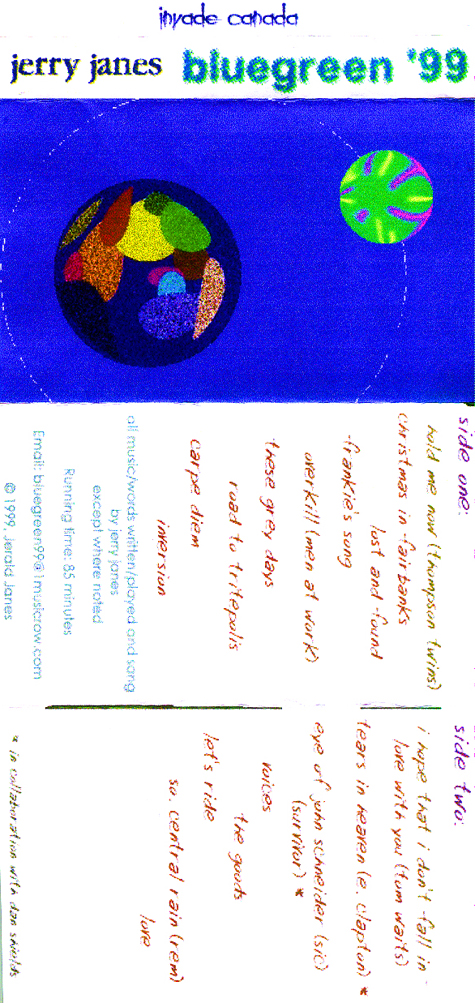 invade canada
jerry janes bluegreen '99
side one:
hold me now (thompson twins)
christmas in fairbanks
lost and found
frankie's song
overkill (men at work)
these grey days
road to tritepolis
carpe diem
inversion
all music/words written/played and sang
by jerry janes
except where noted
Running time: 85 minutes
Email: bluegreen99@1musicrow.com
© 1999, Jerald Janes
side two:
i hope that i don't fall in
love with you (tom waits)
tears in heaven (e. clapton) *
eye of john schneider (sic)
(survivor) *
voices
the goods
let's ride
so. central rain (rem)
love
* in collaboration with dan shields